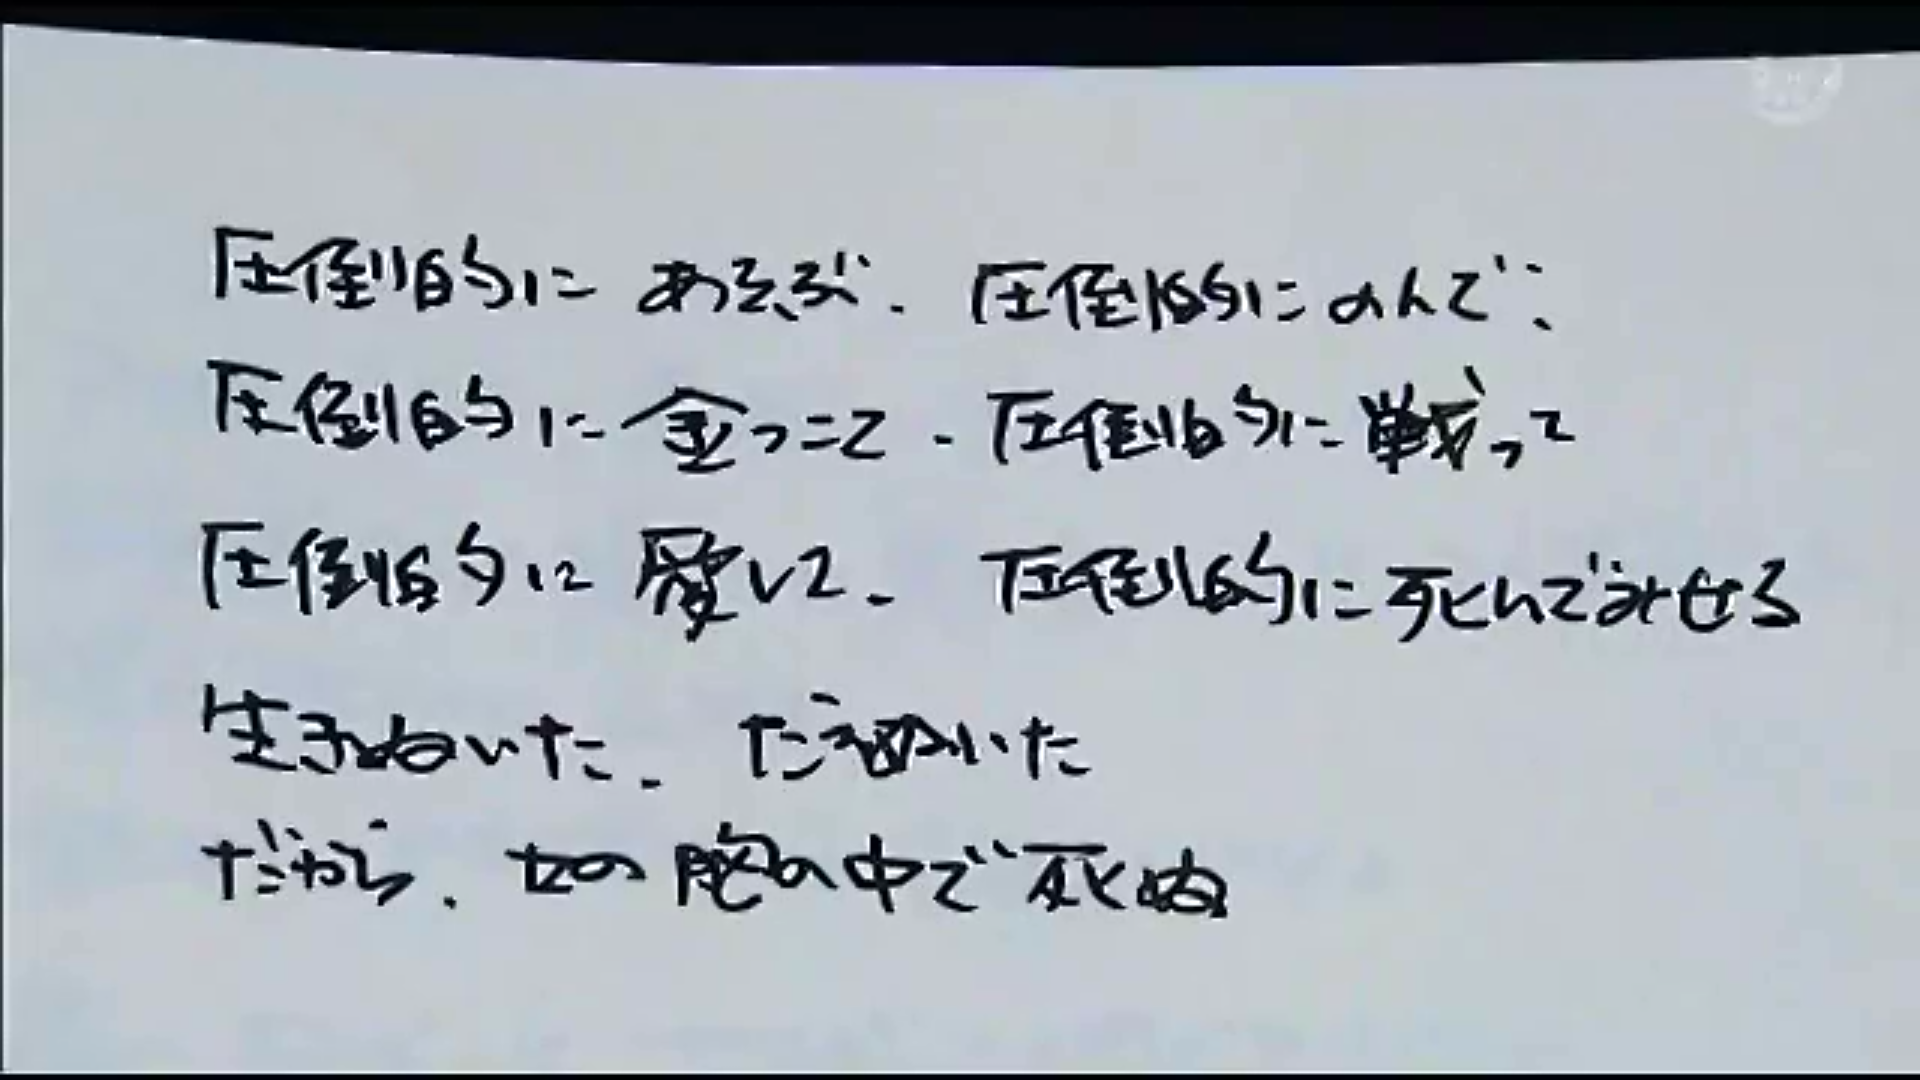 圧倒的に あそぶ、圧倒的にのんで、
圧倒的に金つこて、圧倒的に戦って
圧倒的に愛して、圧倒的に死んでみせる
生きぬいた、だきぬいた
だから、女の胸の中で死ぬ